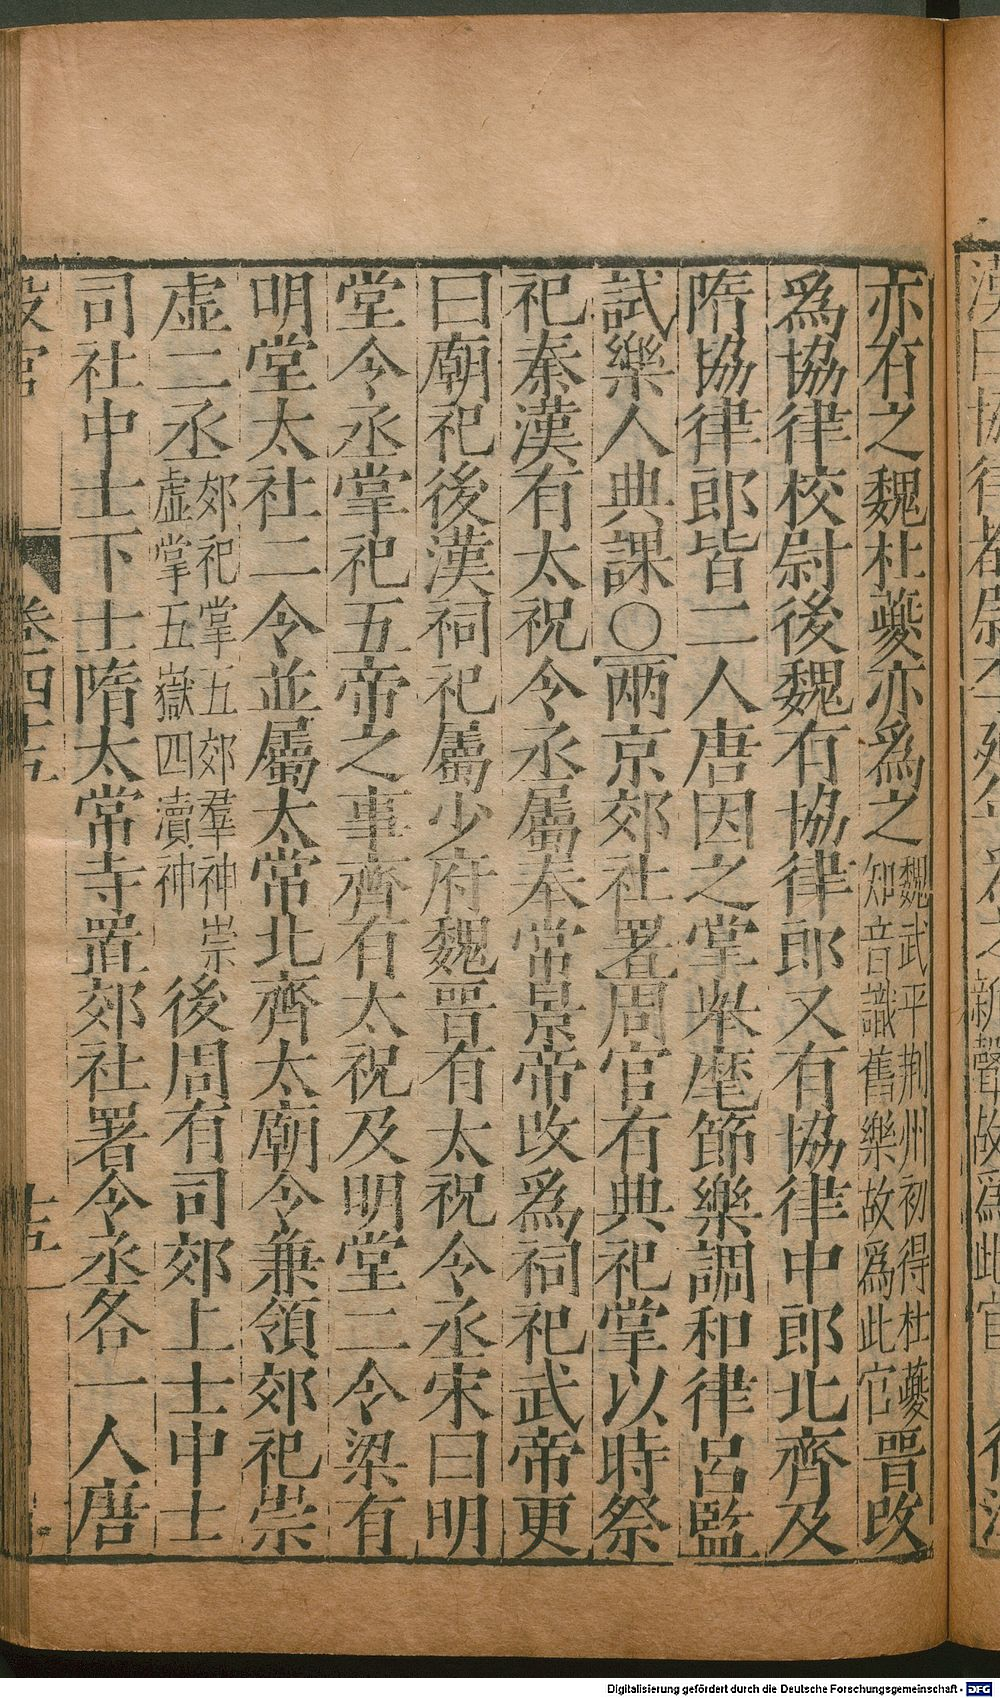 亦有之魏杜夔亦爲之魏武平荆州初得杜夔知音識舊樂故爲此官晉改
爲協律校尉後魏有協律郎又有協律中郎北齊及
隋協律郎皆二人唐因之掌舉麾節樂調和律呂監
試樂人典課○兩京郊社署周官有典祀掌以時祭
祀秦漢有太祝令丞屬奉常景帝改爲祠祀武帝更
曰廟祀後漢祠祀屬少府魏晉有太祝令丞宋曰明
堂令丞掌祀五帝之事齊有太祝及明堂二令梁有
明堂太社二令並屬太常北齊太廟令兼領郊祀崇
虛二丞郊祀掌五郊羣神崇虛掌五嶽四瀆神後周有司郊上士中士
司社中士下士隋太常寺置郊社署令丞各一人唐
卷四十五
十五
Digitalisierung gefördert durch die Deutsche Forschungsgemeinschaft - DFG